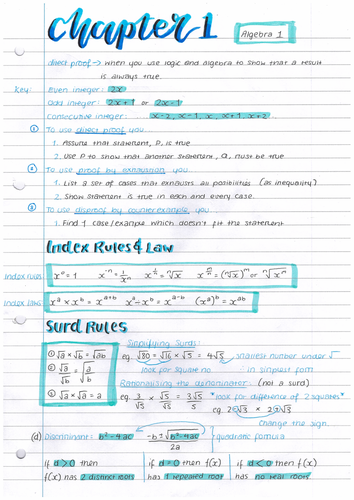 Chapter 1
Algebra 1
direct proof → when you use logic and algebra to show that a result
is always true.
Key:
Even integer: 2x
Odd integer: 2x+1 or 2x-1
Consecutive integer: x-2, x-1, x, x+1, x+2
① To use direct proof, you
1. Assume that statement, P, is true
2. Use P to show that another statement, Q, must be true
② To use proof by exhaustion, you
1. List a set of cases that exhausts all possibilities (as inequality)
2. Show statement is true in each and every case.
③ To use disproof by counterexample, you
1. Find 1 case/example which doesn't fit the statement
Index Rules & Law
Index rules x⁰ = 1 x⁻ⁿ = 1/xⁿ x^(1/n) = ⁿ√x x^(m/n) = (ⁿ√x)ᵐ or ⁿ√xᵐ
Index laws xᵃ × xᵇ = xᵃ⁺ᵇ xᵃ ÷ xᵇ = xᵃ⁻ᵇ (xᵃ)ᵇ = xᵃᵇ
Surd Rules
① √a × √b = √ab
② √a/√b = √(a/b)
③ √a × √a = a
Simplifying Surds:
eg. √80 = √16 × √5 = 4√5 smallest number under √
look for square no. in simplest form
Rationalising the denominator: (not a surd)
eg. 3/√5 × √5/√5 = 3√5/5 *look for difference of 2 squares*
Change the sign.
(d) Discriminant: b²-4ac (-b±√(b²-4ac))/2a quadratic formula
If d>0 then
f(x) has 2 distinct roots
if d=0 then f(x)
has 1 repeated root
if d<0 then f(x)
has no real roots